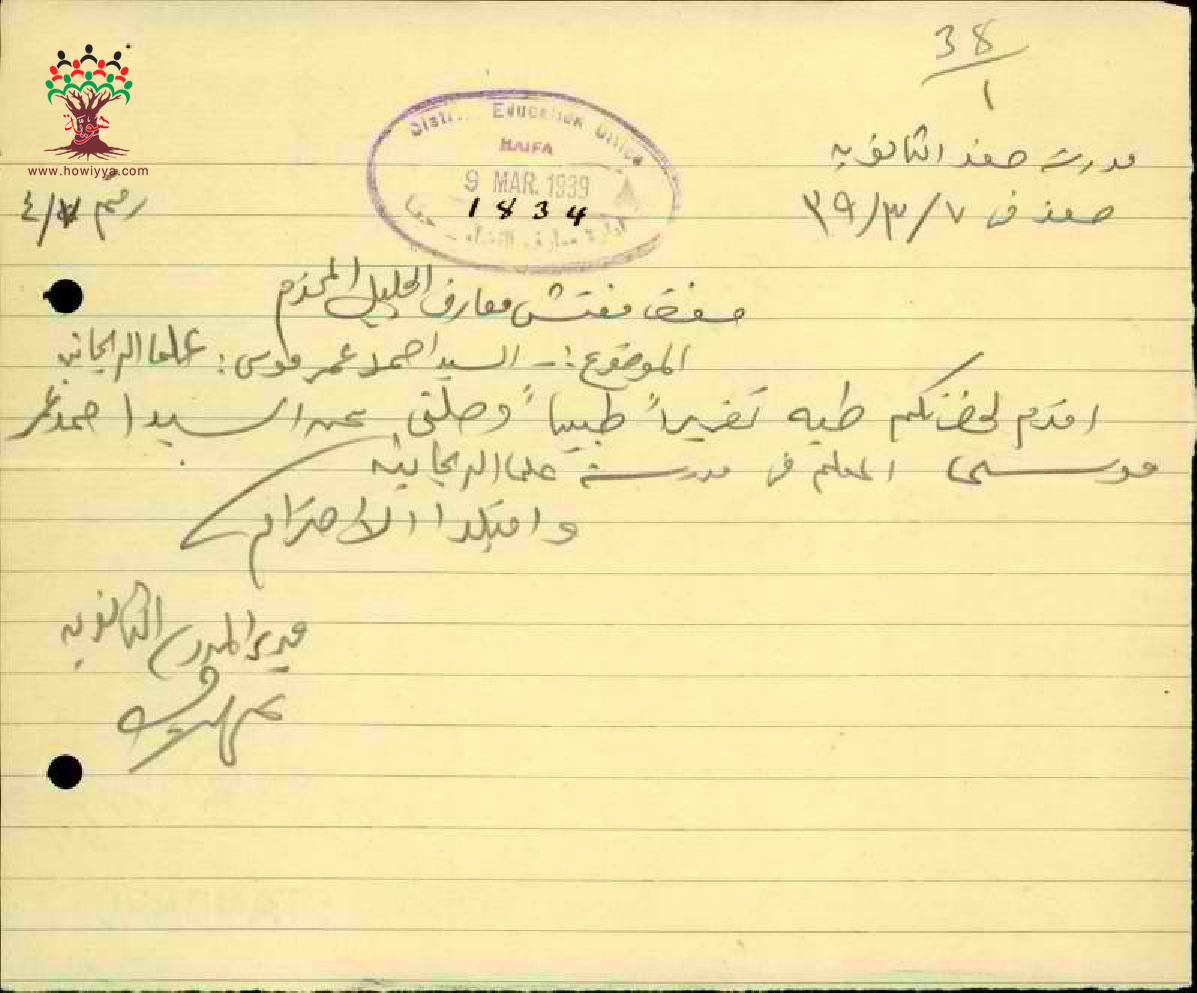 38
1
مدرسة صفد الثانويه
صفد في ٧/٣/٣٩
رقم ٤/٧
District Education Office
HAIFA
9 MAR. 1939
1834
حيفا
هوية
www.howiyya.com
حضرة مفتش معارف الجليل المحترم
الموضوع :- السيد احمد عمر موسى : علما الريحانيه
اقدم لحضرتكم طيه تقريراً طبياً وصلني عن السيد احمد عمر
موسى المعلم في مدرسة علما الريحانيه
واقبلوا الاحترام
مدير المدرسة الثانويه